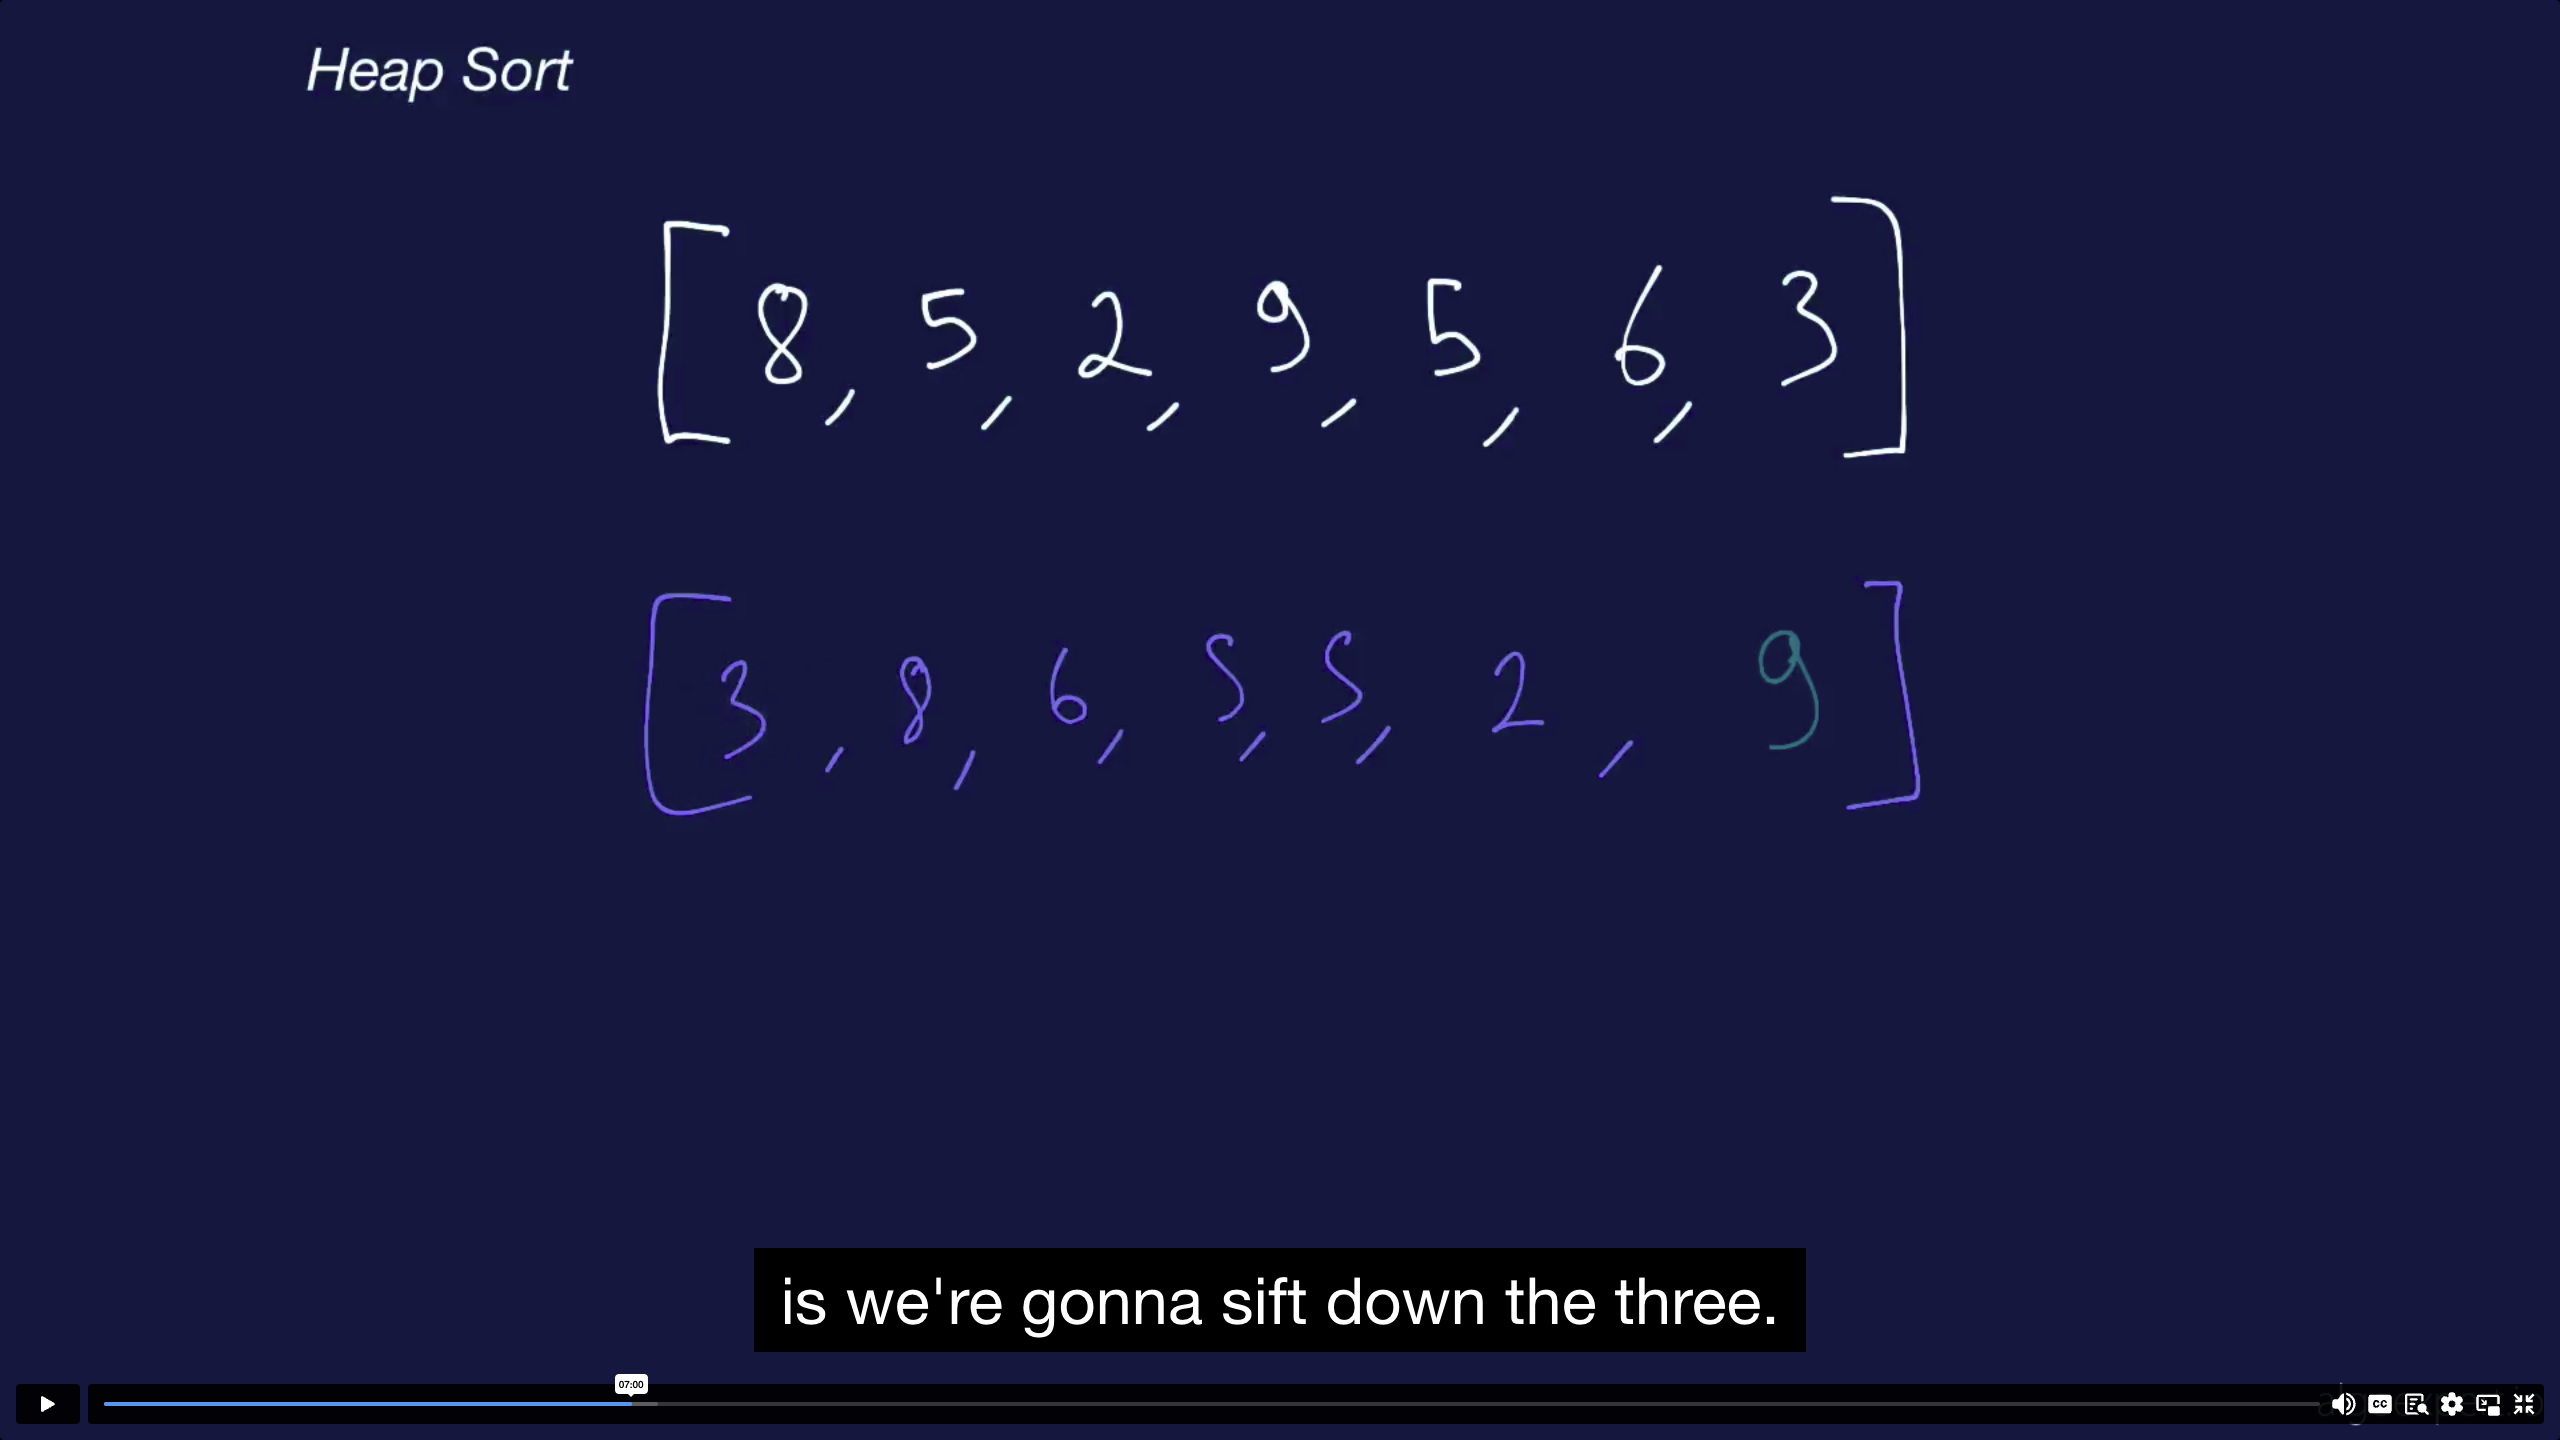 Heap Sort
[8, 5, 2, 9, 5, 6, 3]
[3, 8, 6, 5, 5, 2, 9]
is we're gonna sift down the three.
07:00
CC